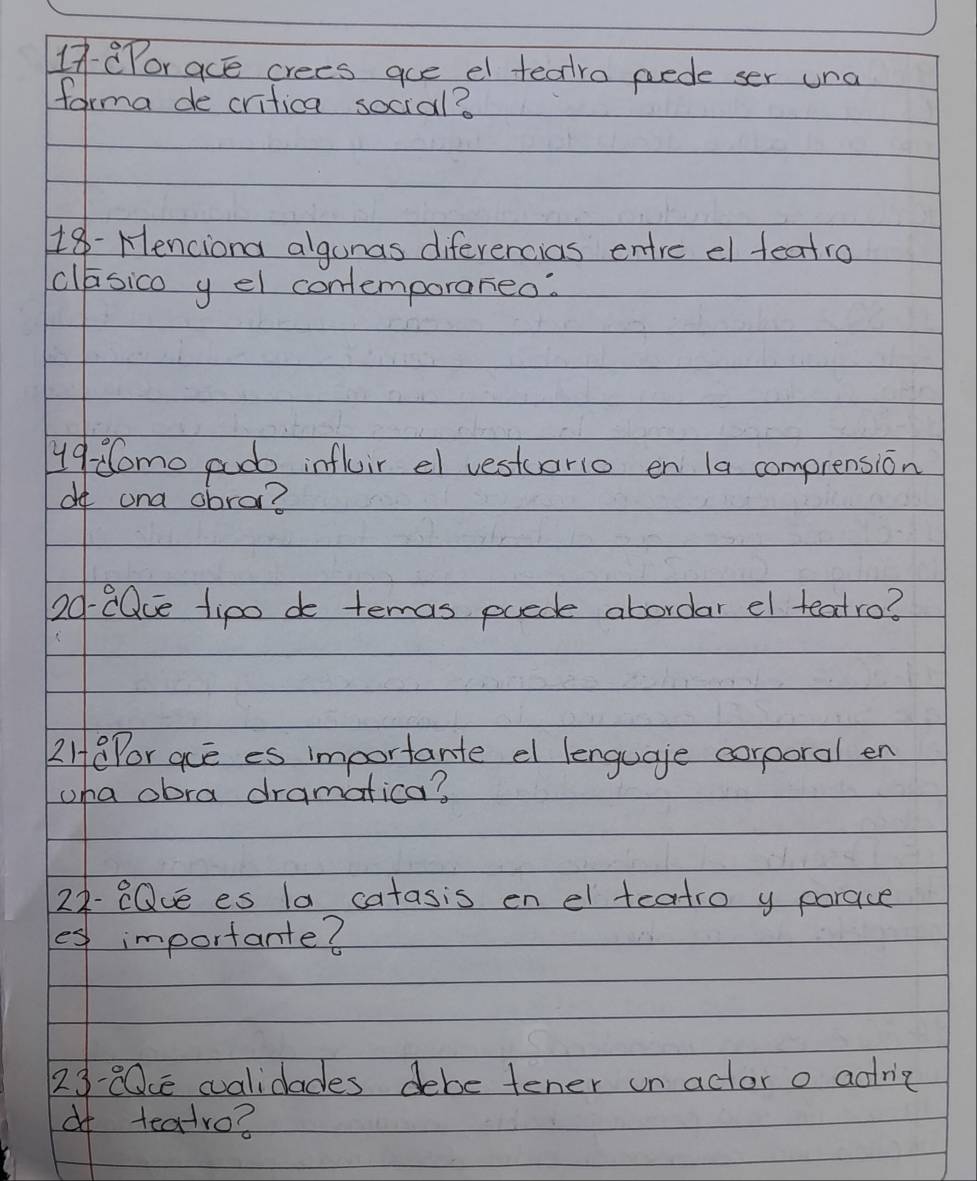 17-¿Por qué crees que el teatro puede ser una
forma de critica social?
18- Menciona algunas diferencias entre el teatro
clásico y el contemporáneo:
19-¿Como pudo influir el vestuario en la comprensión
de una obra?
20-¿Qué tipo de temas puede abordar el teatro?
21-¿Por qué es importante el lenguaje corporal en
una obra dramatica?
22-¿Qué es la catasis en el teatro y porque
es importante?
23-¿Qué cualidades debe tener un actor o actriz
de teatro?